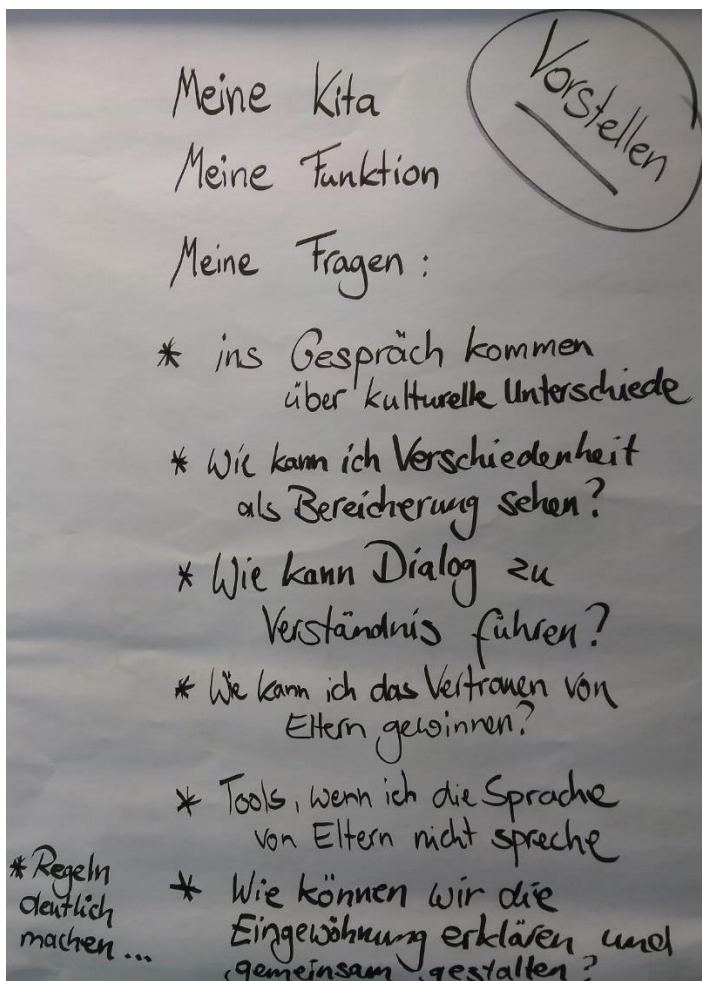 Vorstellen
Meine Kita
Meine Funktion
Meine Fragen :
* ins Gespräch kommen
über kulturelle Unterschiede
* Wie kann ich Verschiedenheit
als Bereicherung sehen?
* Wie kann Dialog zu
Verständnis führen?
* Wie kann ich das Vertrauen von
Eltern gewinnen?
* Tools, wenn ich die Sprache
von Eltern nicht spreche
* Regeln
deutlich
machen ...
* Wie können wir die
Eingewöhnung erklären und
gemeinsam gestalten?